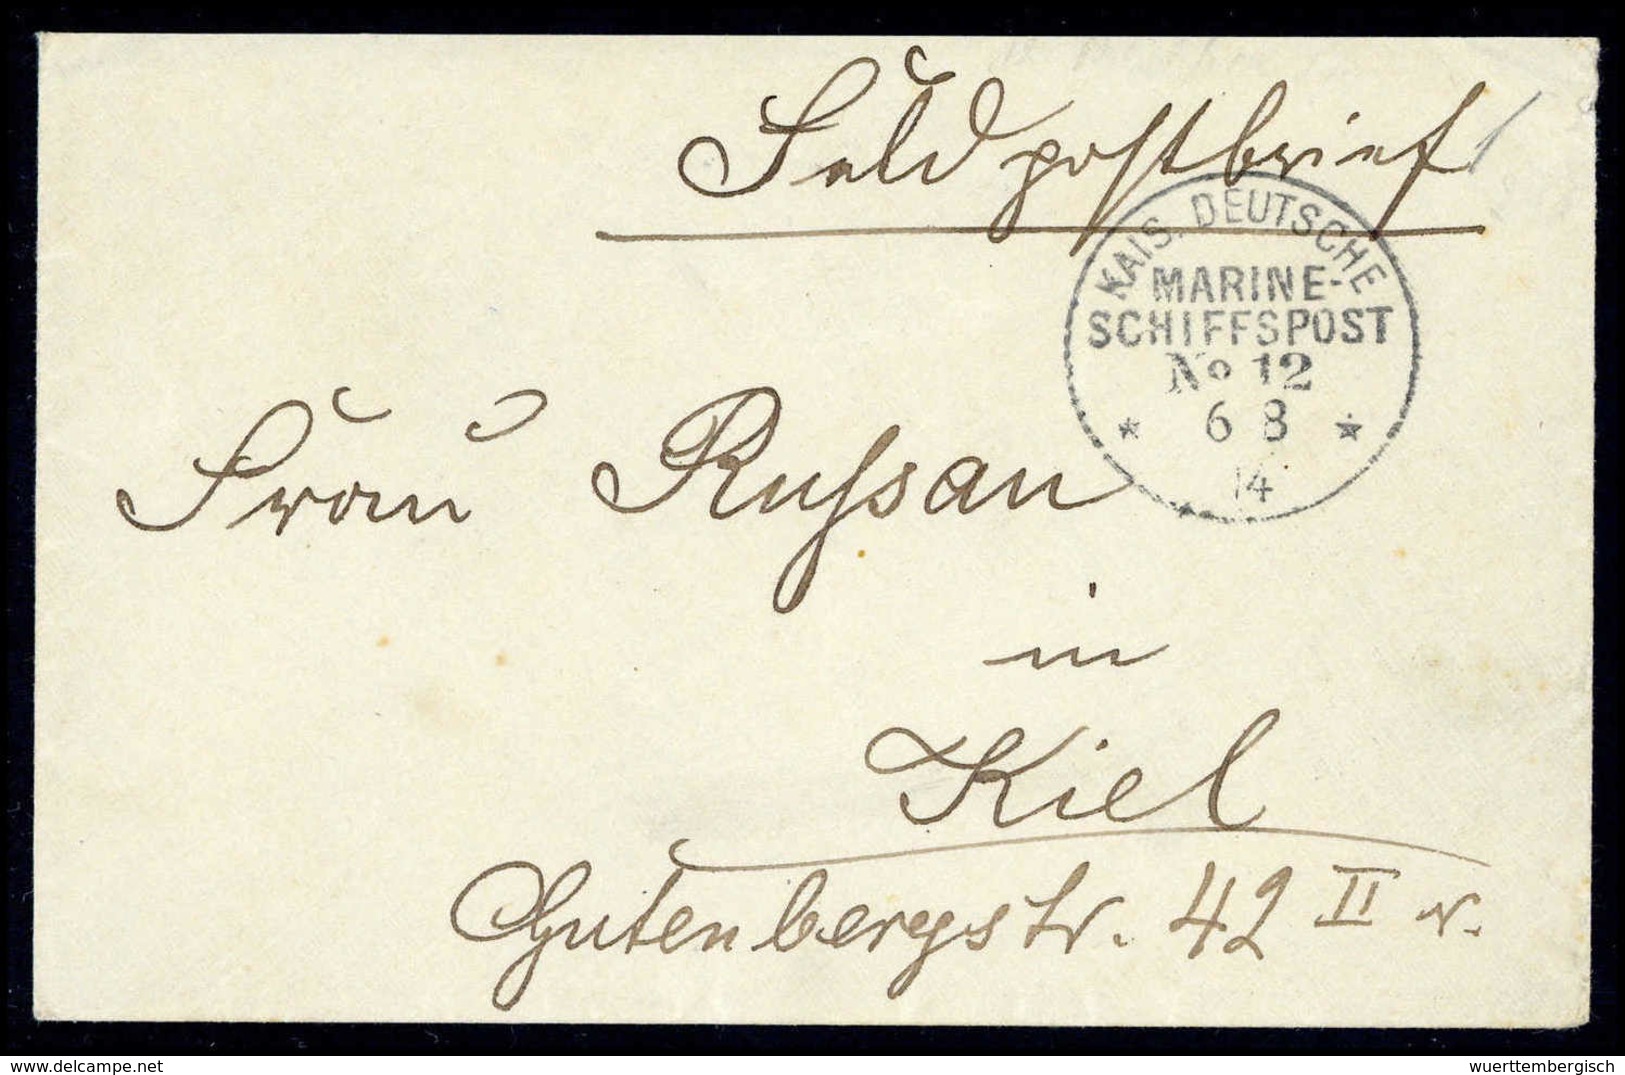 Feldpostbrief
KAIS. DEUTSCHE
MARINE-
SCHIFFSPOST
No 12
* 6 8 *
14
Frau Russau
in
Kiel
Gutenbergstr. 42 II r.
© delcampe.net
wuerttembergisch